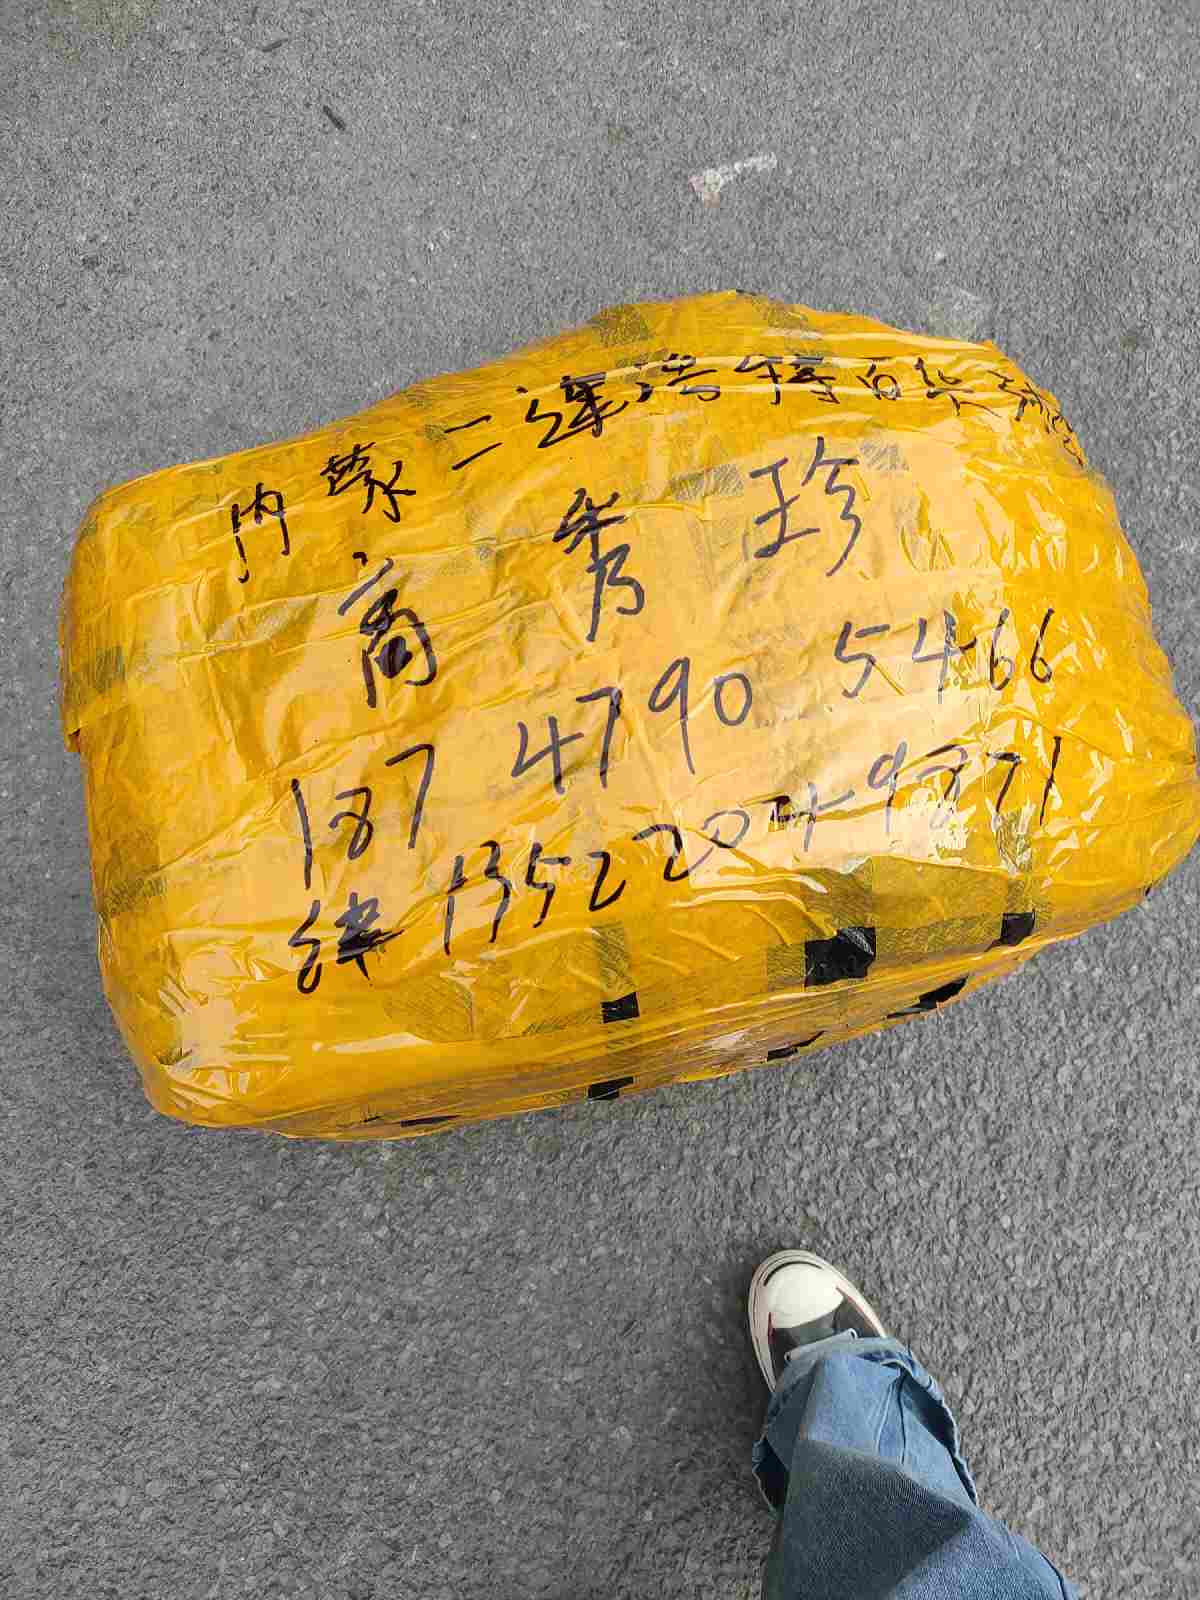 内蒙二连浩特百货
高秀珍
187 4790 5466
纬 13522049871